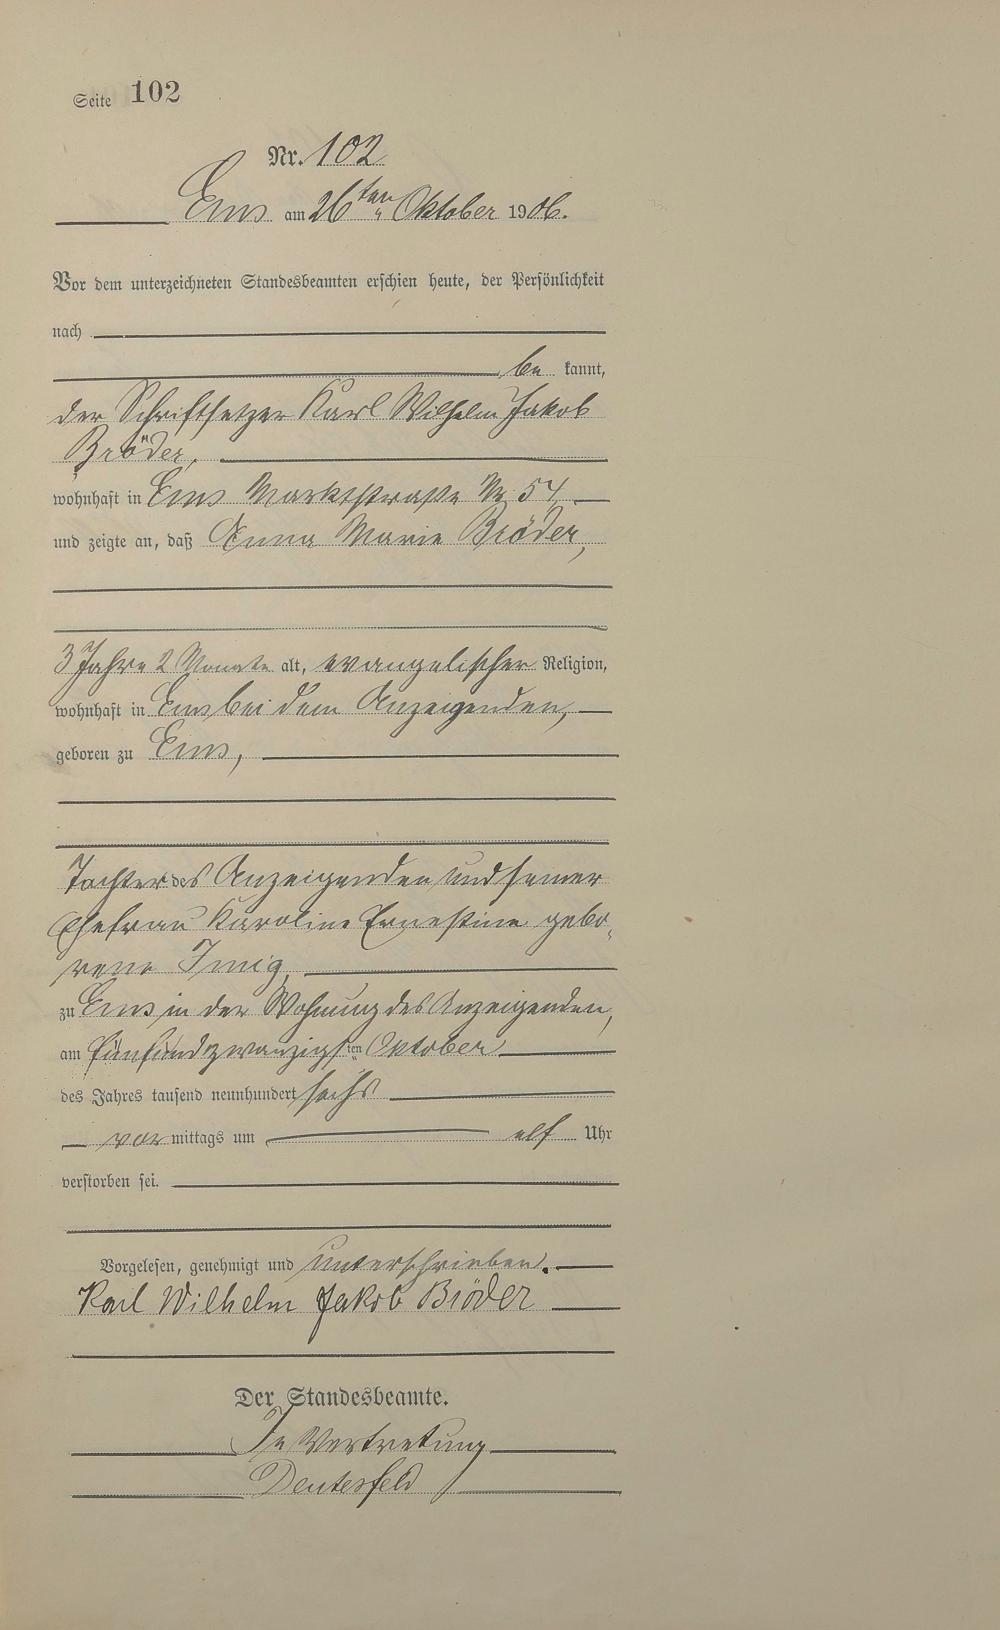 Seite 102
Nr. 102
Ems am 26ten Oktober 1906.
Vor dem unterzeichneten Standesbeamten erschien heute, der Persönlichkeit
nach
be kannt,
der Schriftsetzer Karl Wilhelm Jakob
Bröder,
wohnhaft in Ems Marktstraße Nr 54,
und zeigte an, daß Anna Marie Bröder,
3 Jahre 2 Monate alt, evangelischer Religion,
wohnhaft in Ems bei dem Anzeigenden,
geboren zu Ems,
Tochter des Anzeigenden und seiner
Ehefrau Karoline Ernestine gebo-
rene Imig,
zu Ems, in der Wohnung des Anzeigenden,
am fünfundzwanzigsten Oktober
des Jahres tausend neunhundert sechs
vor mittags um elf Uhr
verstorben sei.
Vorgelesen, genehmigt und unterschrieben.
Karl Wilhelm Jakob Bröder
Der Standesbeamte.
In Vertretung
Deutesfeld